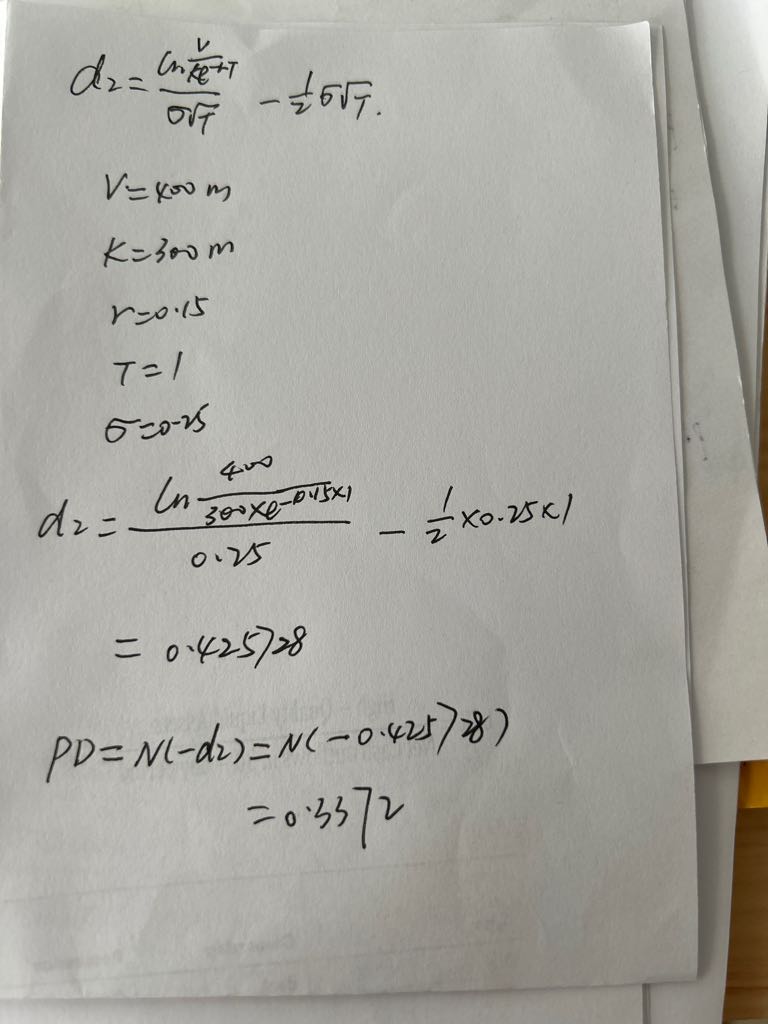 d₂ = ln(V/Ke^-rT)/σ√T - 1/2 σ√T.
V=400m
K=300m
r=0.15
T=1
σ=0.25
d₂ = ln(400/300×e^-0.15×1)/0.25 - 1/2 ×0.25×1
= 0.425728
PD=N(-d₂)=N(-0.425728)
=0.3372